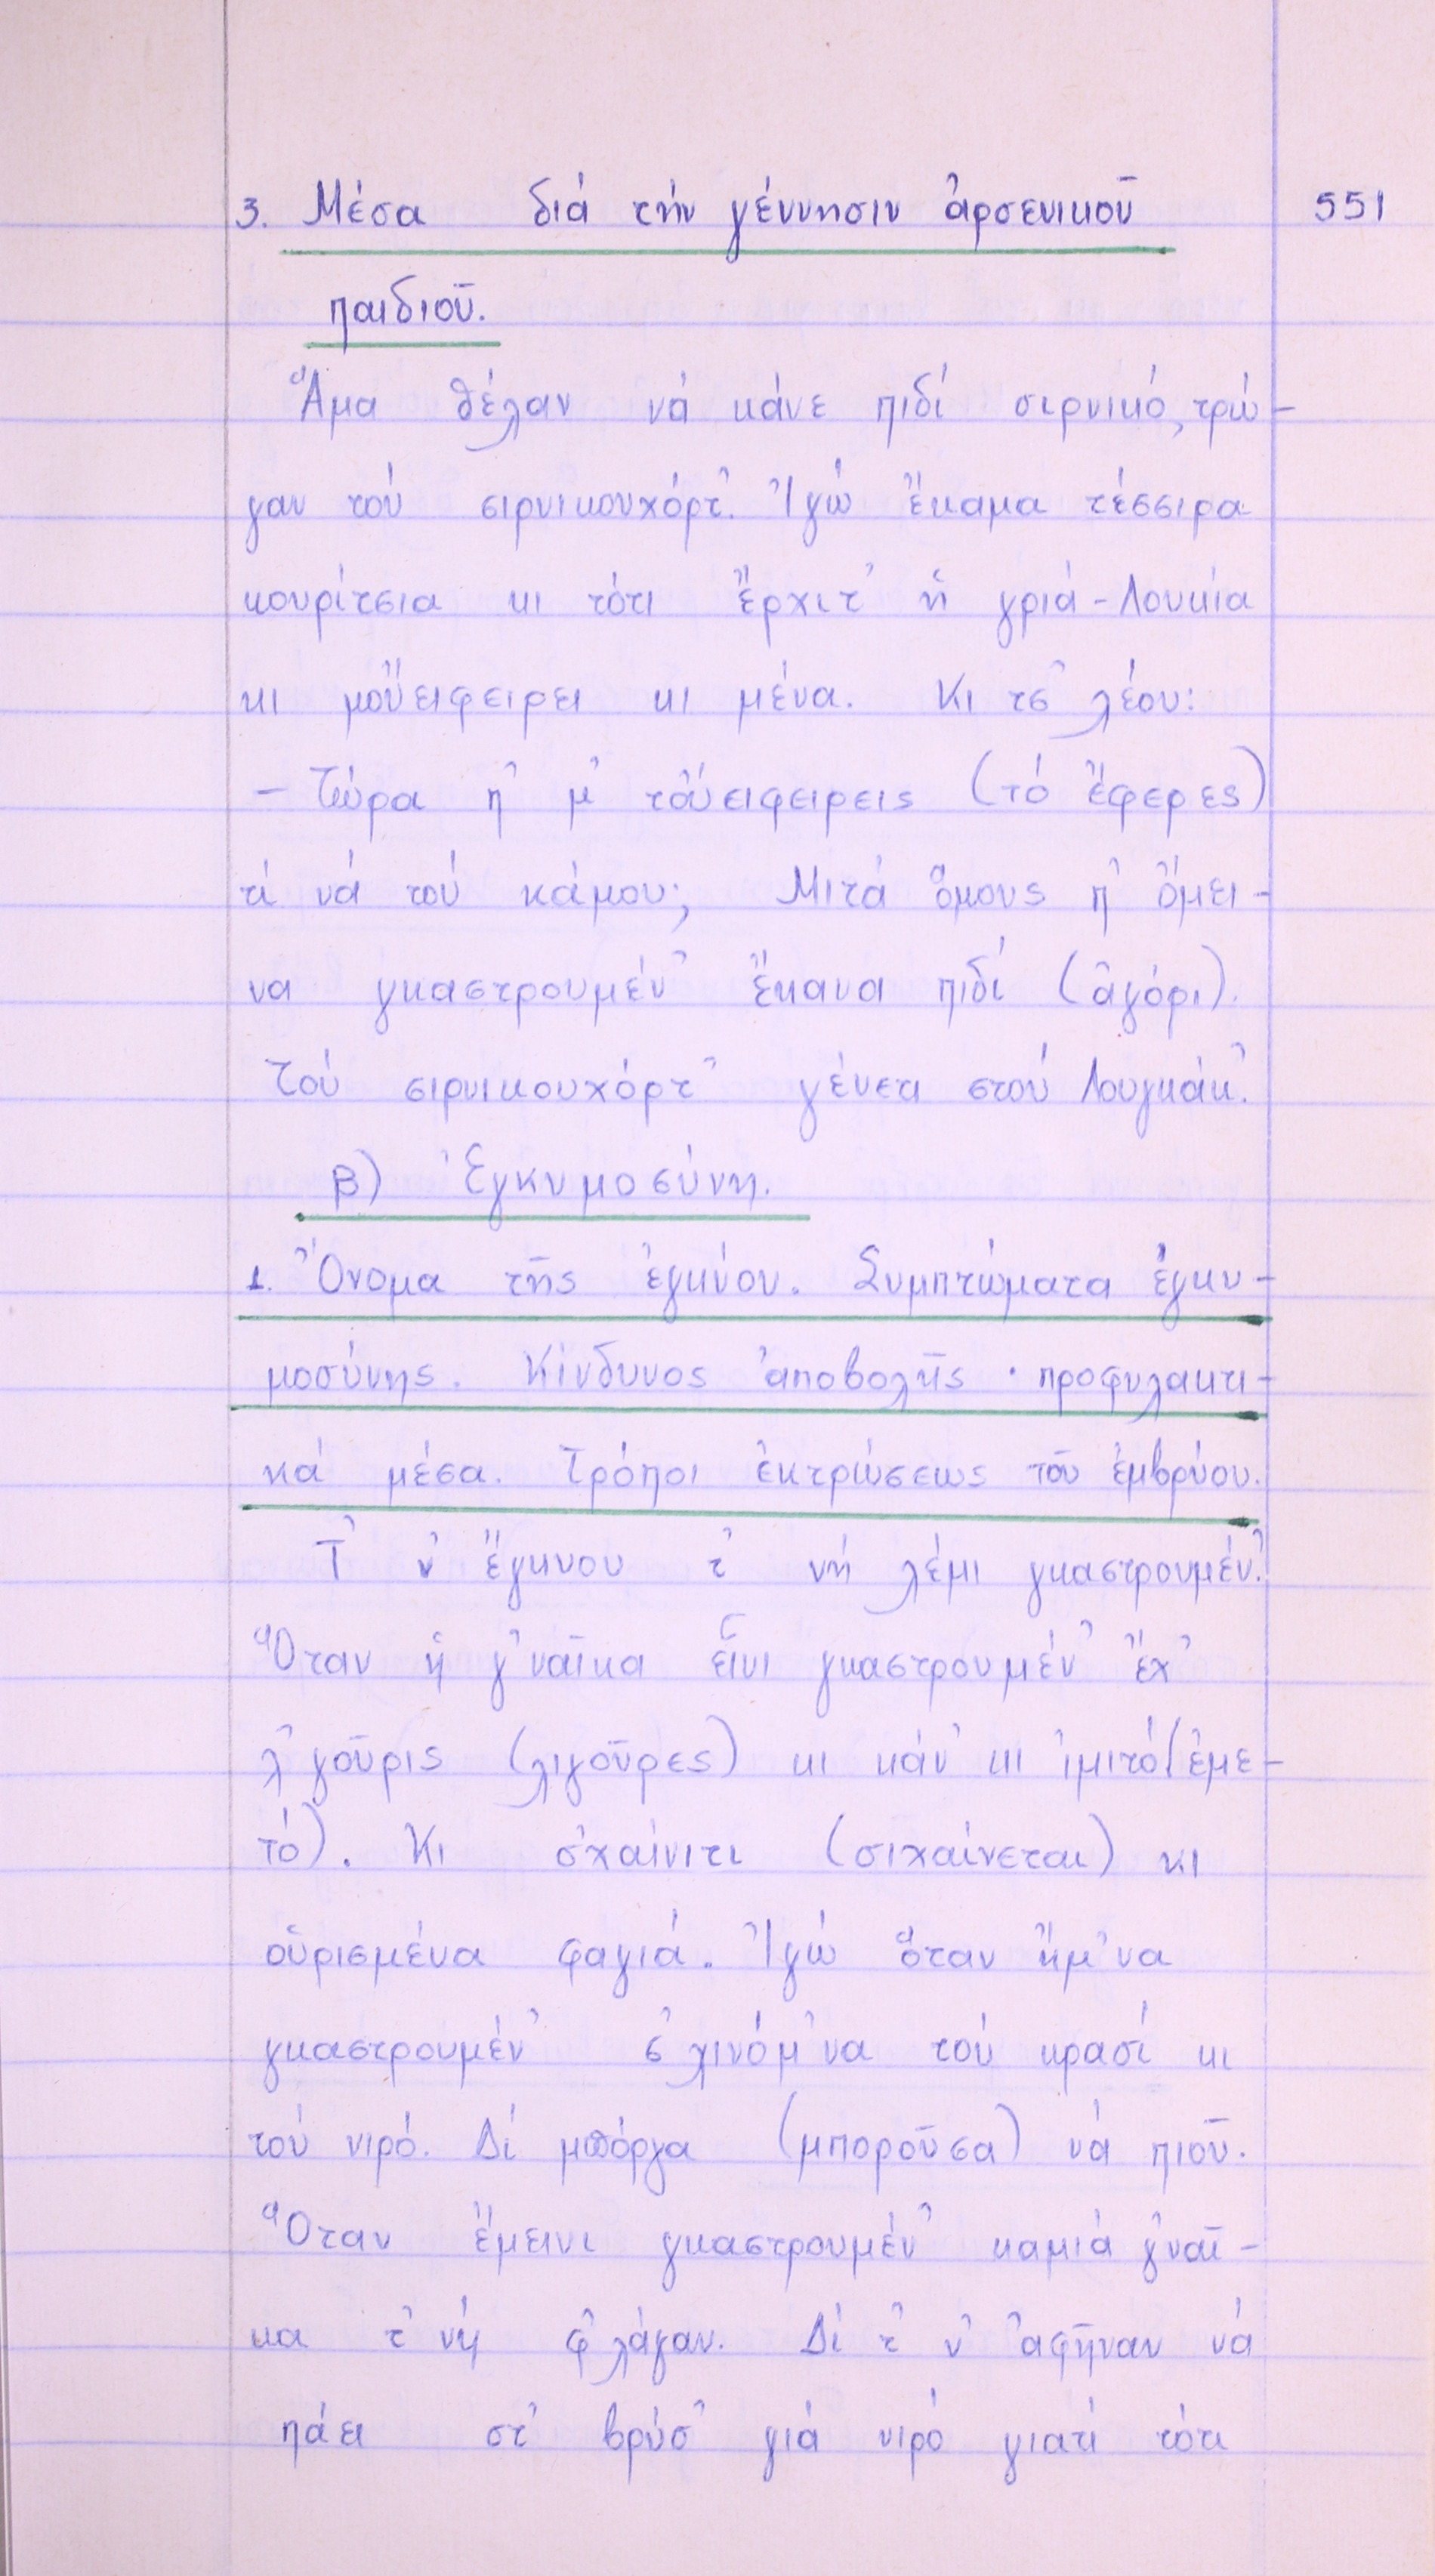 3. Μέσα διά τήν γέννησιν ἀρσενικοῦ 551
παιδιοῦ.
Ἅμα θέλαν νά κάνε πιδί σιρνικό, τρώ-
γαν τού σιρνικουχόρτ'. Ἰγώ ἔκαμα τέσσιρα
κουρίτσια κι τότι ἔρχιτ' ἡ γριά-Λουκία
κι μοὔειφειρει κι μένα. Κι τσ' λέου:
- Τώρα π' μ' τοὔειφειρεις (τό ἔφερες)
τί νά τού κάμου; Μιτά ὅμους π' ὄμει-
να γκαστρουμέν' ἔκανα πιδί (ἀγόρι).
Τού σιρνικουχόρτ' γένετι στού Λουγκάκ'.
β) Ἐγκυμοσύνη.
1. Ὄνομα τῆς ἐγκύου. Συμπτώματα ἐγκυ-
μοσύνης. Κίνδυνος ἀποβολῆς · προφυλακτι-
κά μέσα. Τρόποι ἐκτρώσεως τοῦ ἐμβρύου.
Τ' ν' ἔγκυου τ' νή λέμι γκαστρουμέν'.
Ὅταν ἡ γ'ναῖκα εἶνι γκαστρουμέν' ἔχ'
λ'γοῦρις (λιγοῦρες) κι κάν' κι ἰμιτό (ἐμε-
τό). Κι σ'χαίνιτι (σιχαίνεται) κι
οὑρισμένα φαγιά. Ἰγώ ὅταν ἤμ'να
γκαστρουμέν' σ'χινόμ'να τού κρασί κι
τού νιρό. Δί μπόργα (μποροῦσα) νά πιοῦ.
Ὅταν ἔμεινι γκαστρουμέν' καμιά γ'ναῖ-
κα τ' νή φ'λάγαν. Δί τ' ν' ἀφῆναν νά
πάει στ' βρύσ' γιά νιρό γιατί τότι